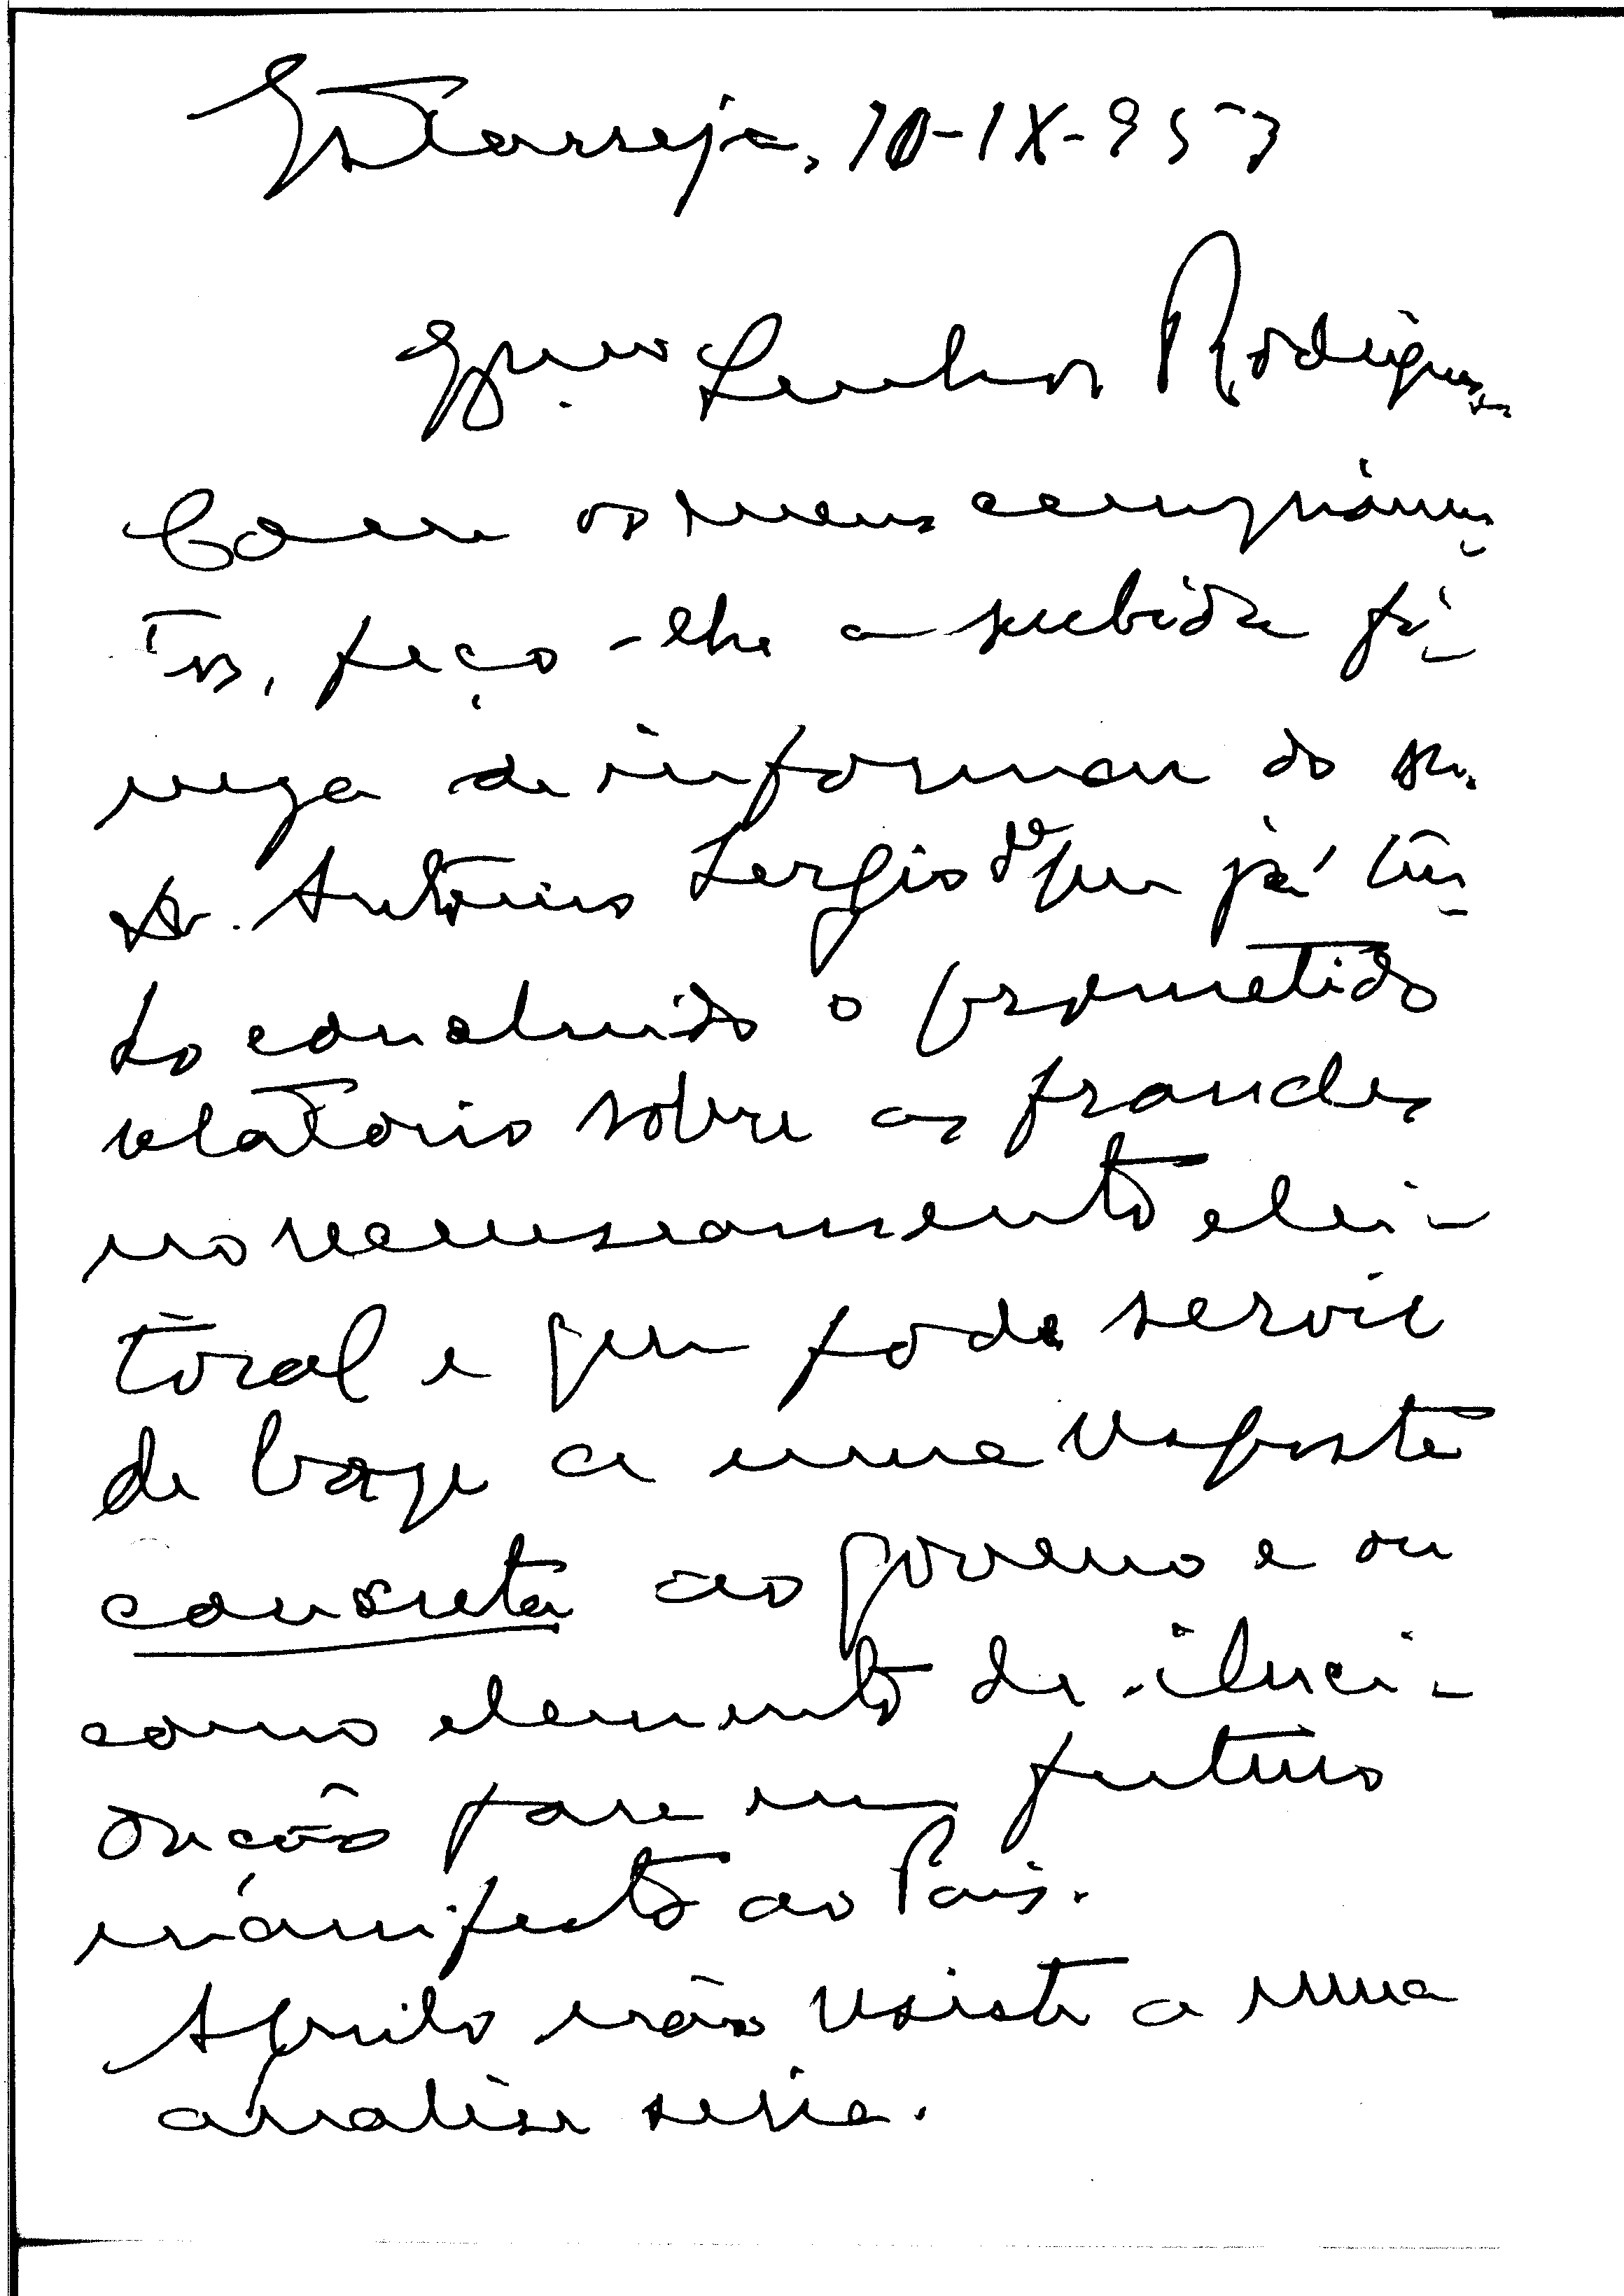 Estarreja, 10-IX-957
Exmo. Senhor Rodrigues
Com os meus cumprimen-
tos, peço-lhe a subida fi-
neza de informar do sr.
Dr. António Sergio de que já te-
nho concluido o prometido
relatório sobre as fraudes
no recenseamento elei-
toral e que pode servir
de base a uma resposta
concreta ao governo e ou
como elemento de eluci-
dação para um futuro
manifesto ao Pais.
Aquilo não resiste a uma
analise seria.